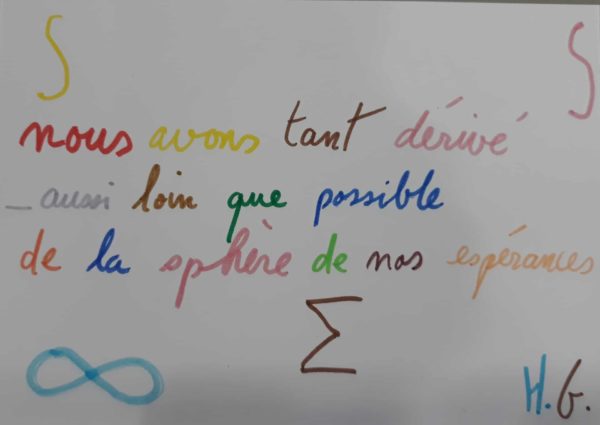 ∫ ∫
nous avons tant dérivé
_ aussi loin que possible
de la sphère de nos espérances
Σ
∞ H.G.